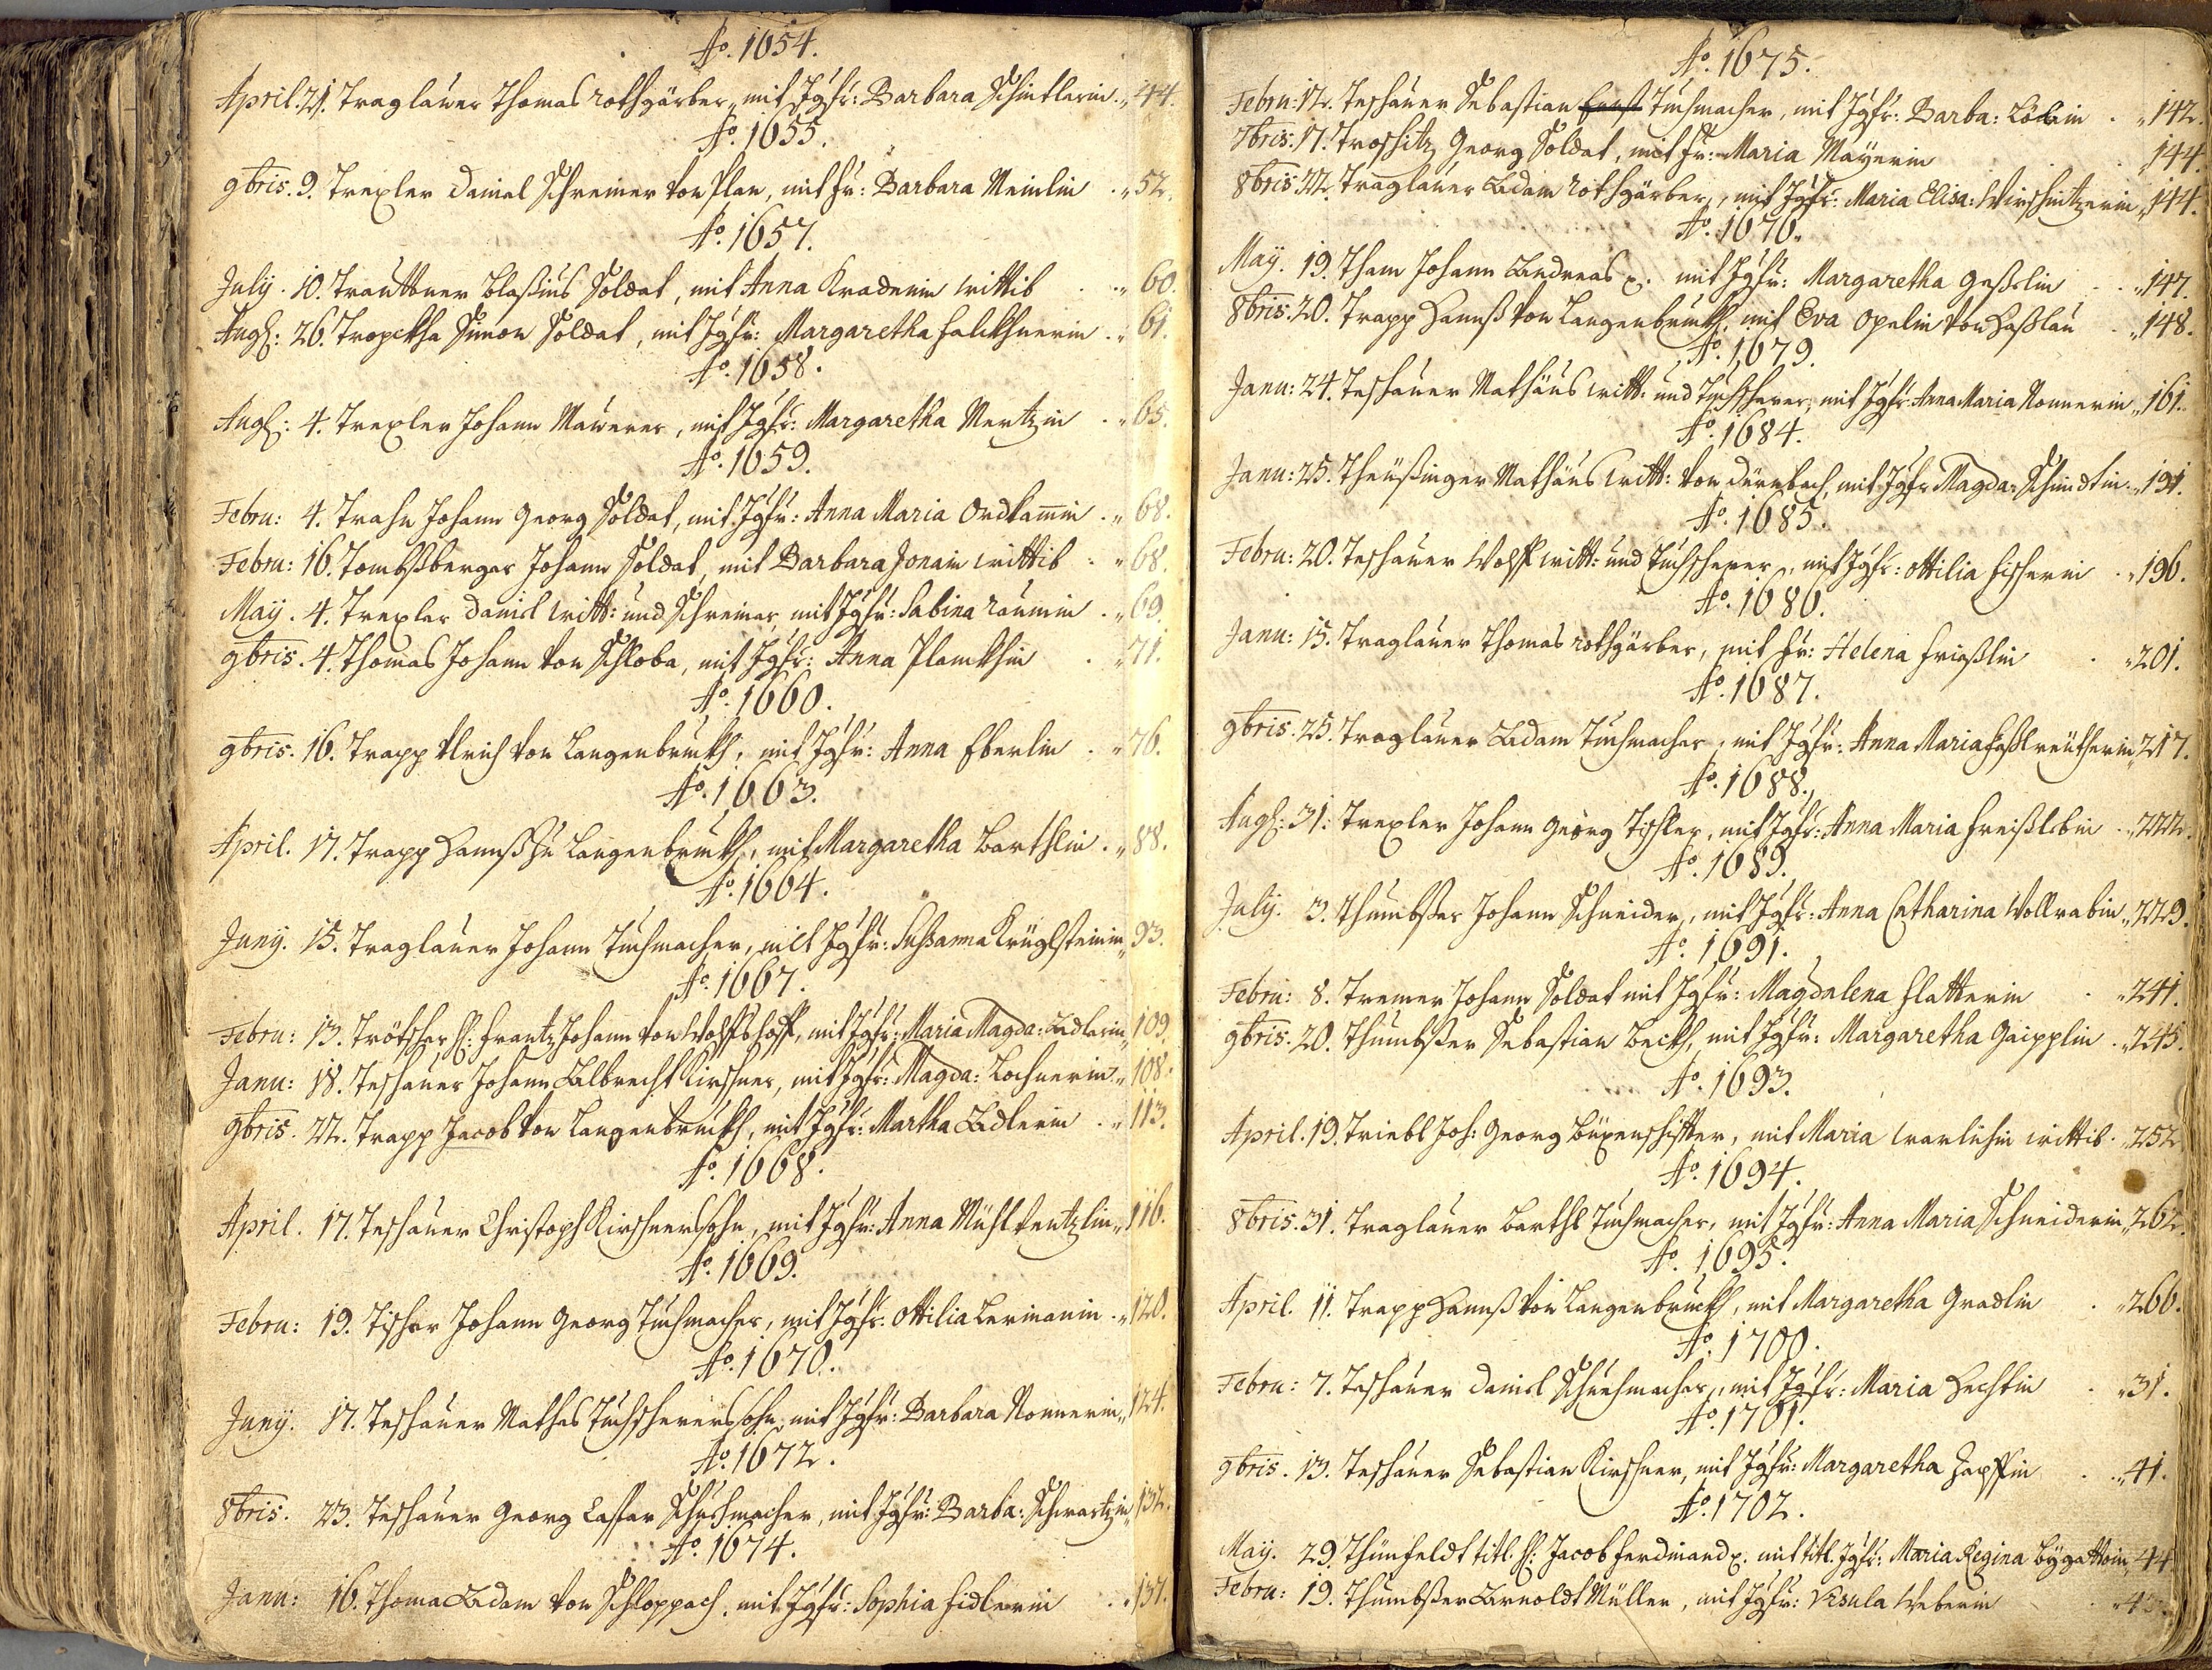 Ao. 1654.
April. 21. Traglawer Thomas rothgärber, mit Jgfr: Barbara Schintlerin. „ 44.
Ao. 1655.
9bris. 9. Trexler Daniel Schreiner von Plan, mit Fr: Barbara Meinlin . „ 52.
Ao. 1657.
July. 10. Trauttner Blaßius Soldat, mit Anna Kraderin wittib . . „ 60.
Aug: 26. Tropckha Simon Soldat, mit Jgfr: Margaretha Falckhnerin . „ 61.
Ao. 1658.
Aug: 4. Trexler Johann Mawerer, mit Jgfr: Margaretha Mertzin . „ 65.
Ao. 1659.
Febru: 4. Trahn Johann Georg Soldat, mit Jgfr: Anna Maria Ordtamin . „ 68.
Febru: 16. Tombßberger Johann Soldat, mit Barbara Jonain wittib . „ 68.
May. 4. Trexler Daniel witt: und Schreiner, mit Jgfr: Sabina Raumin . „ 69.
9bris. 4. Thomas Johann von Schloba, mit Jgfr: Anna Planckhin . „ 71.
Ao. 1660.
9bris. 16. Trapp Ulrich von Langenbruckh, mit Jgfr: Anna Eberlin . „ 76.
Ao. 1663.
April. 17. Trapp Hannß zu Langenbruckh, mit Margaretha Barthlin . „ 88.
Ao. 1664.
Juny. 15. Traglauer Johann Tuchmacher, mit Jgfr: Sußanna Krüglsteinin „ 93.
Ao. 1667.
Febru: 13. Trötscher H: Frantz Johann von Wolffshoff, mit Jgfr: Maria Magda: Adlerin „ 109.
Janu: 18. Teschauer Johann Albrecht Kirschner, mit Jgfr: Magda: Lochnerin „ 108.
9bris. 22. Trapp Jacob von Langenbruckh, mit Jgfr: Martha Adlerin . „ 113.
Ao. 1668.
April. 17. Teschauer Christoph Kirschnerssohn, mit Jgfr: Anna Mühldentzlin „ 116.
Ao. 1669.
Febru: 19. Tischer Johann Georg Tuchmacher, mit Jgfr: Ottilia Lermanin . „ 120.
Ao. 1670.
Juny. 17. Teschauer Mathes Tuchscherers sohn, mit Jgfr: Barbara Nonnerin „ 124.
Ao. 1672.
8bris. 23. Teschauer Georg Caspar Schuchmacher, mit Jgfr: Barba: Schwartzin „ 132.
Ao. 1674.
Janu: 16. Thoma Adam von Schloppach, mit Jgfr: Sophia Fidlerin . „ 137.
Ao. 1675.
Febru: 12. Teschauer Sebastian Tuchmacher, mit Jgfr: Barba: Löbin . „ 142.
7bris. 17. Troschitz Georg Soldat, mit Fr: Maria Mayerin 144.
8bris. 22. Traglauer Adam rothgärber, mit Jgfr: Maria Elisa: Wirschnitzerin „ 144.
Ao. 1676.
May. 19. Tham Johann Andreas x. mit Jgfr: Margaretha Geßlin . „ 147.
8bris. 20. Trapp Hannß von Langenbruckh, mit Eva Opelin von Haßlau . „ 148.
Ao. 1679.
Janu: 24. Teschauer Mathäus witt: und Tuchscherer, mit Jgfr: Anna Maria Nonnerin „ 161.
Ao. 1684.
Janu: 25. Theüßinger Mathäus witt: von Dürnbach, mit Jgfr Magda: Schmidtin „ 191.
Ao. 1685.
Febru: 20. Teschauer Wolff witt: und Tuchscherer, mit Jgfr: Ottilia Fischerin . „ 196.
Ao. 1686.
Janu: 15. Traglauer Thomas rothgärber, mit Fr: Helena Frießlin . „ 201.
Ao. 1687.
9bris. 25. Traglauer Adam Tuchmacher, mit Jgfr: Anna Maria Haßlreütherin „ 217.
Ao. 1688.
Aug: 31. Trexler Johann Georg Tischler, mit Jgfr: Anna Maria Freißlebin . „ 222.
Ao. 1689.
July. 3. Thumbßer Johann Schneider, mit Jgfr: Anna Catharina Vollrabin „ 229.
Ao. 1691.
Febru: 8. Tremer Johann Soldat mit Jgfr: Magdalena Flatterin . „ 241.
9bris. 20. Thumbßer Sebastian Beckh, mit Jgfr: Margaretha Gaipplin . „ 245.
Ao. 1693.
April. 19. Triebl Joh: Georg Büxenschiffter, mit Maria Warlichin wittib . „ 252.
Ao. 1694.
8bris. 31. Traglauer Barthl Tuchmacher, mit Jgfr: Anna Maria Schneiderin „ 262.
Ao. 1695.
April. 11. Trapp Hannß von Langenbruckh, mit Margaretha Gradlin . „ 266.
Ao. 1700.
Febru: 7. Teschauer Daniel Schuchmacher, mit Jgfr: Maria Hechtin . „ 31.
Ao. 1701.
9bris. 13. Teschauer Sebastian Kirschner, mit Jgfr: Margaretha Zapffin . „ 41.
Ao. 1702.
May. 29. Thünfeldt titl. H: Jacob Ferdinand x. mit titl. Jgfr: Maria Regina Bygattoin „ 44.
Febru: 19. Thumbßer Arnoldt Müller, mit Jgfr: Ursula Weberin